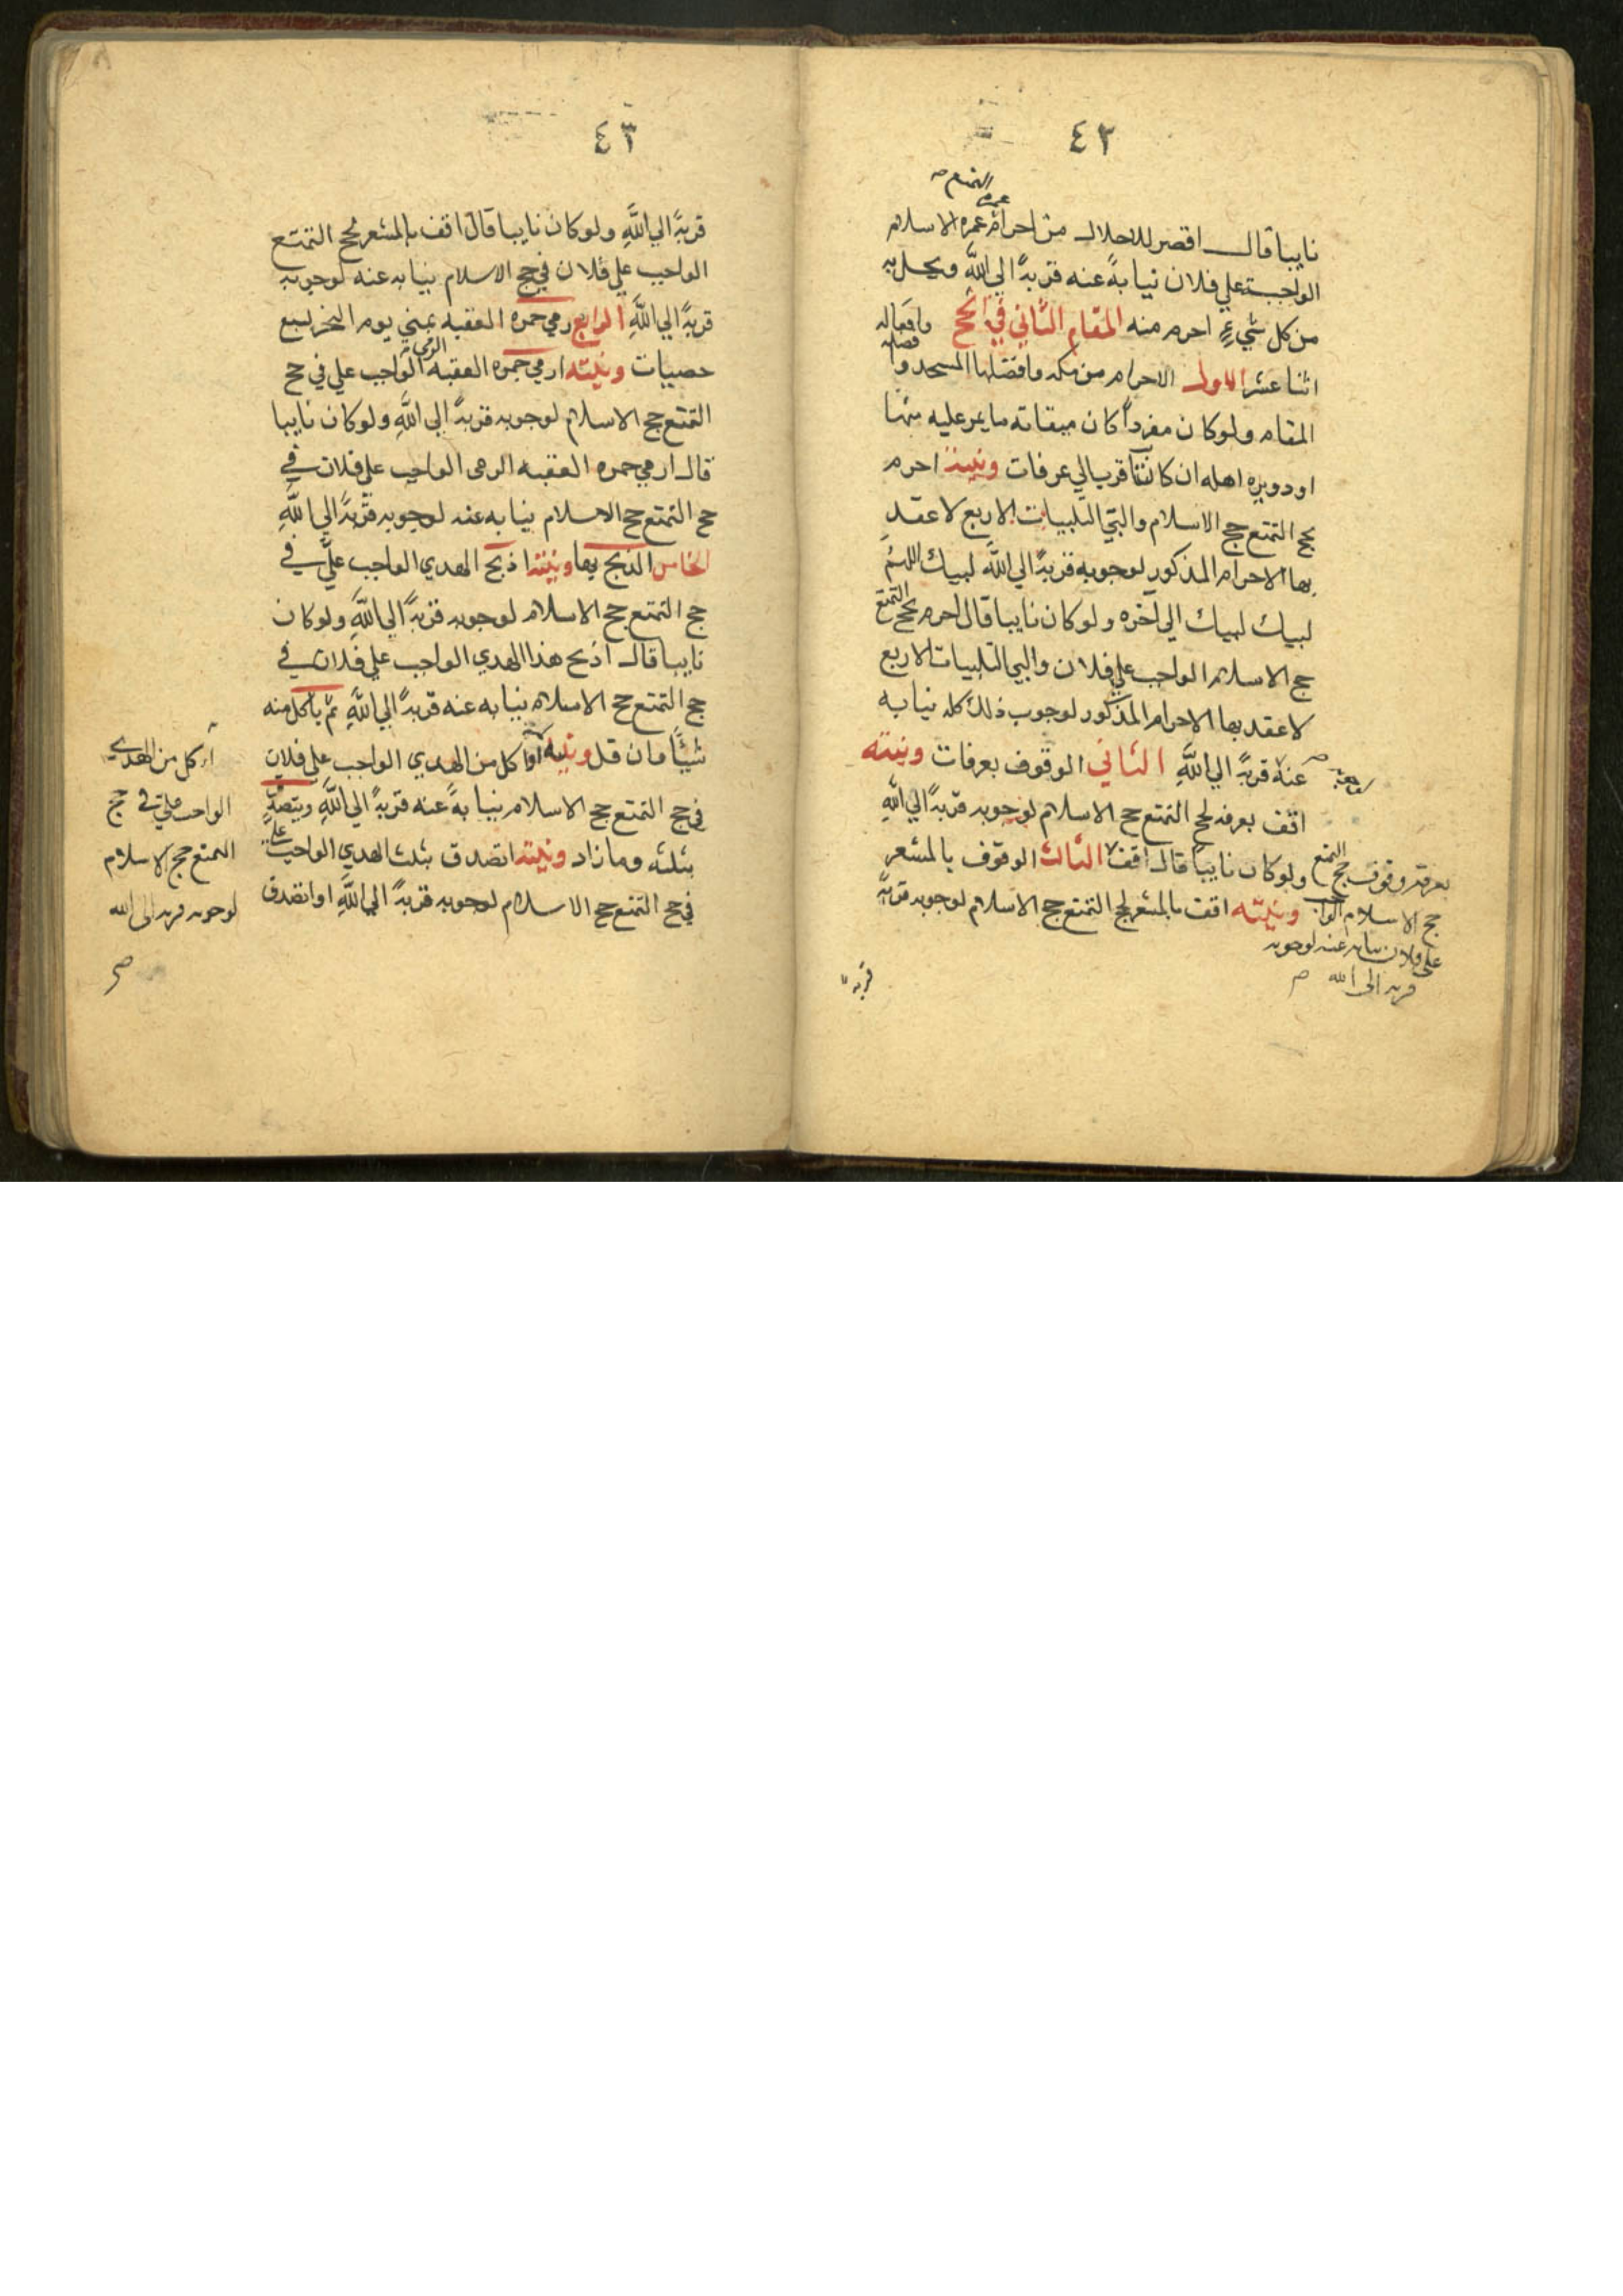 ٤٢
التمتع صح
عمرة
نايبا قال اقصر للاحلال من احرام عمره الاسلام
الواجبة علي فلان نيابةً عنه قربةً الي اللّهِ ويحل به
من كل شيءٍ احرم منه المقام الثاني في الحج وافعاله
اثنا عشر الاول الاحرام من مكه وافضلها المسجد و
المقام ولو كان مفرداً كان ميقاته ما يمر عليه منها
او دويره اهله ان كانت اقرب الي عرفات ونيته احرم
بحج التمتع حج الاسلام والبي التلبيات الاربع لاعقد
بها الاحرام المذكور لوجوبه قربةً الي اللّهِ لبيك اللهم
لبيك لبيك الي آخره ولو كان نايبا قال احرم بحج التمتع
حج الاسلام الواجب علي فلان والبي التلبيات الاربع
لاعقد بها الاحرام المذكور لوجوب ذلك كله نيابه
عنه قربةً الي اللّهِ الثاني الوقوف بعرفات ونيته
اقف بعرفه لحج التمتع حج الاسلام لوجوبه قربةً الي اللّهِ
ولو كان نايباً قال اقف الثالث الوقوف بالمشعر
ونيته اقف بالمشعر لحج التمتع حج الاسلام لوجوبه قربةً
بعرفة وقوف حج التمتع
حج الاسلام الواجب
علي فلان نيابه عنه لوجوبه
قربه الى الله صح
قربة
٤٣
قربةً الي اللّهِ ولو كان نايبا قال اقف بالمشعر لحج التمتع
الواجب علي فلان في حج الاسلام نيابه عنه لوجوبه
قربةً الي اللّهِ الرابع رمي جمره العقبه بمني يوم النحر بسبع
حصيات ونيته ارمي جمره العقبه الرمي الواجب علي في حج
التمتع حج الاسلام لوجوبه قربةً الي اللّهِ ولو كان نايبا
قال ارمي جمره العقبه الرمى الواجب علي فلان في
حج التمتع حج الاسلام نيابه عنه لوجوبه قربةً الي اللّهِ
الخامس الذبح بها ونيته اذبح الهدي الواجب عليّ في
حج التمتع حج الاسلام لوجوبه قربةً الي اللّهِ ولو كان
نايبا قال اذبح هذا الهدي الواجب علي فلان في
حج التمتع حج الاسلام نيابه عنه قربةً الي اللّهِ ثم ياكل منه
شيئًا وان قل ونيته اكل من الهدي الواجب علي فلان
في حج التمتع حج الاسلام نيابةً عنه قربةً الي اللّهِ ويتصدق
بثلثه وما زاد ونيته اتصدق بثلث الهدي الواجب علي
في حج التمتع حج الاسلام لوجوبه قربةً الي اللّهِ او اتصدق
اكل من الهدي
الواجب علي في حج
التمتع حج الاسلام
لوجوبه قربه الى الله
صح